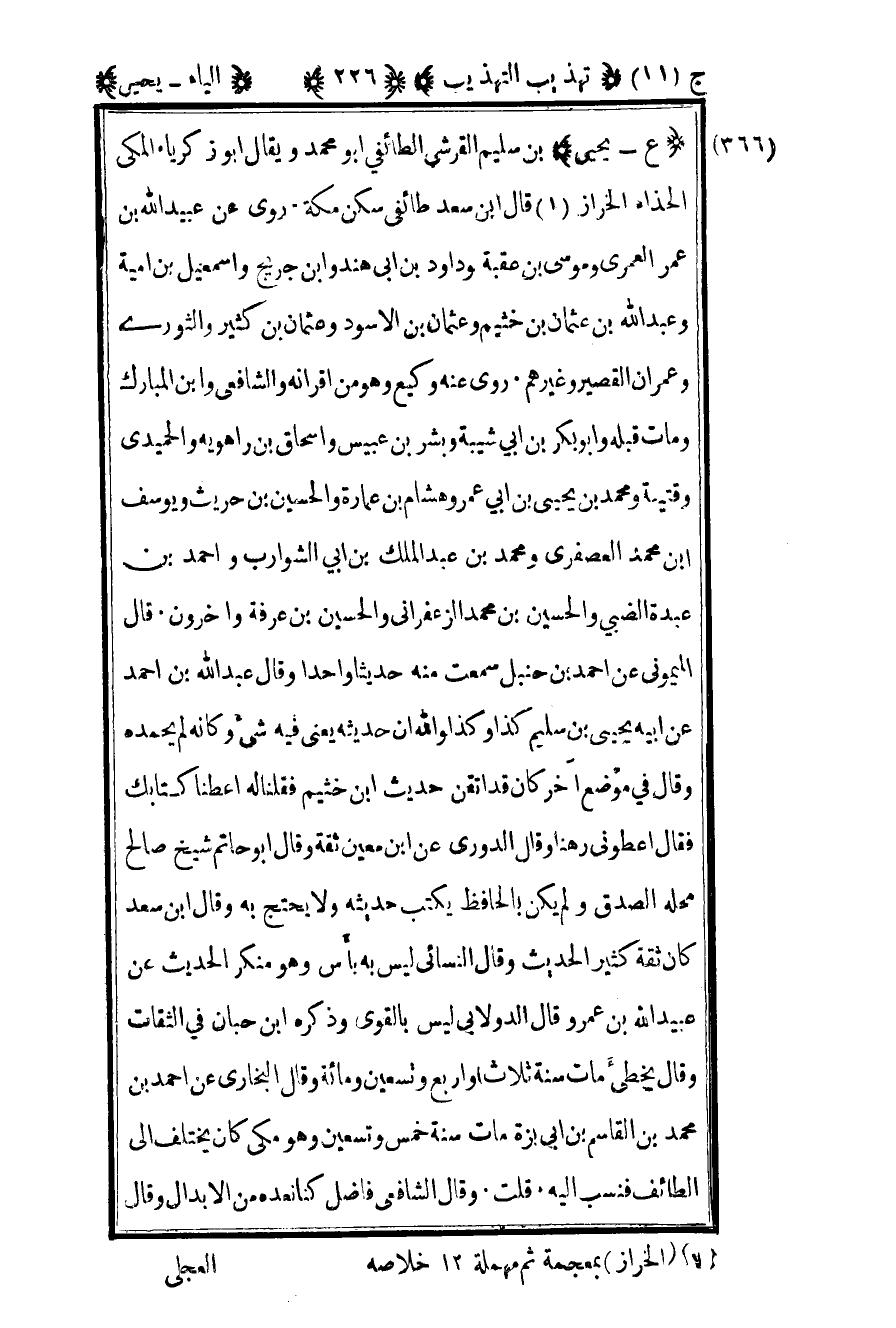 ج (١١) ﴿ تهذيب التهذيب ﴾ ﴿ ٢٢٦ ﴾ ﴿ الياء ـ يحيى ﴾
(٣٦٦) ﴿ ع ـ يحيى ﴾ بن سليم القرشي الطائفي ابو محمد ويقال ابو زكرياء المكى
الحذاء الخراز (١) قال ابن سعد طائفى سكن مكة · روى عن عبيدالله بن
عمر العمرى وموسى بن عقبة وداود بن ابى هند وابن جريج واسمعيل بن امية
وعبدالله بن عثمان بن خثيم وعثمان بن الاسود وعثمان بن كثير والثورے
وعمران القصير وغيرهم · روى عنه وكيع وهو من اقرانه والشافعى وابن المبارك
ومات قبله وابوبكر بن ابي شيبة وبشر بن عبيس واسحاق بن راهويه والحميدى
وقتيبة ومحمد بن يحيى بن ابي عمر وهشام بن عمارة والحسين بن حريث ويوسف
ابن محمد العصفرى ومحمد بن عبدالملك بن ابي الشوارب و احمد بن
عبدة الضبي والحسين بن محمد الزعفرانى والحسين بن عرفة واخرون · قال
الميمونى عن احمد بن حنبل سمعت منه حديثا واحدا وقال عبدالله بن احمد
عن ابيه يحيى بن سليم كذا وكذا والله ان حديثه يعنى فيه شئ وكانه لم يحمده
وقال في موضع آخر كان قد اتقن حديث ابن خثيم فقلنا له اعطنا كتابك
فقال اعطونى رهنا وقال الدورى عن ابن معين ثقة وقال ابو حاتم شيخ صالح
محله الصدق و لم يكن بالحافظ يكتب حديثه ولا يحتج به وقال ابن سعد
كان ثقة كثير الحديث وقال النسائى ليس به بأس وهو منكر الحديث عن
عبيدالله بن عمرو قال الدولابي ليس بالقوى وذكره ابن حبان في الثقات
وقال يخطئ مات سنة ثلاث او اربع وتسعين ومائة وقال البخارى عن احمد بن
محمد بن القاسم بن ابى بزة مات سنة خمس وتسعين وهو مكى كان يختلف الى
الطائف فنسب اليه · قلت · وقال الشافعى فاضل كنا نعده من الابدال وقال
(الخراز) بمعجمة ثم مهملة ١٢ خلاصه العجلى